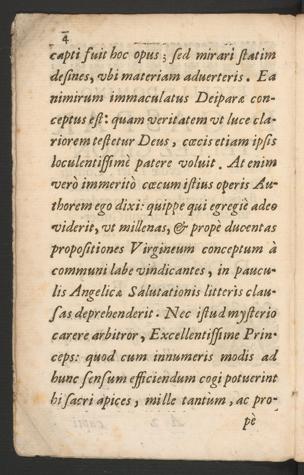 4
capti fuit hoc opus; sed mirari statim
desines, vbi materiam aduerteris. Ea
nimirum immaculatus Deiparæ con-
ceptus est: quam veritatem vt luce cla-
riorem testetur Deus, cæcis etiam ipsis
loculentissimè patere voluit. At enim
verò immeritò cæcum istius operis Au-
thorem ego dixi: quippe qui egregiè adeo
viderit, vt millenas, & propè ducentas
propositiones Virgineum conceptum à
communi labe vindicantes, in paucu-
lis Angelicæ Salutationis litteris clau-
sas deprehenderit. Nec istud mysterio
carere arbitror, Excellentissime Prin-
ceps: quod cum innumeris modis ad
hunc sensum efficiendum cogi potuerint
hi sacri apices, mille tantum, ac pro-
pè